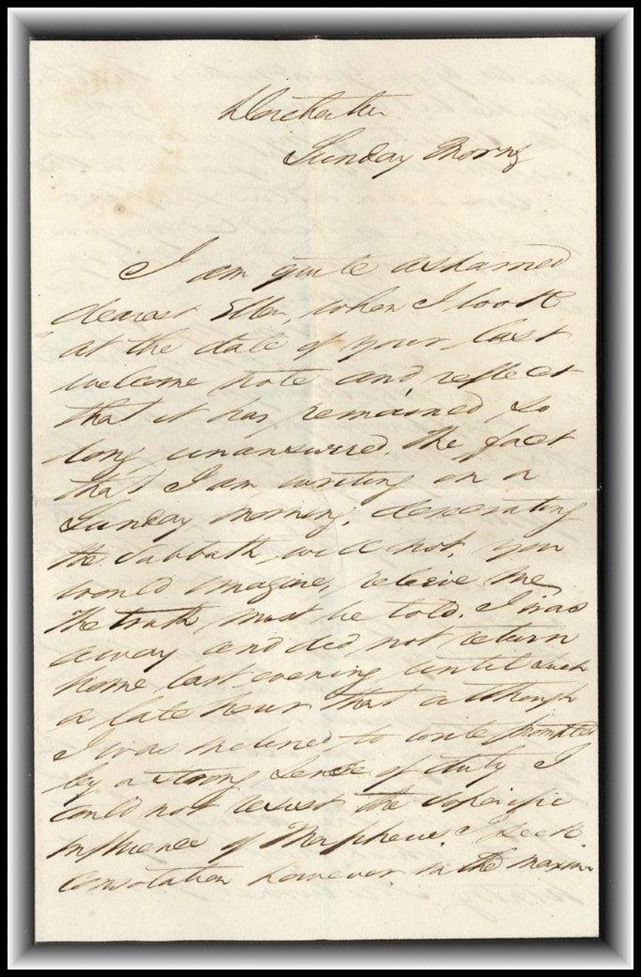 Dorchester
Sunday Morng
I am quite ashamed
dearest Ellen, when I look
at the date of your last
welcome note and, reflect
that it has remained so
long unanswered. The fact
that I am writing on a
Sunday morning, desecrating
the Sabbath, will not, you
would imagine, relieve me
The truth, must be told. I was
away and did not return
home last evening until such
a late hour that although
I was inclined to write prompted
by a strong sense of duty I
could not resist the soporific
influence of Morpheus. I seek
consolation however in the maxim